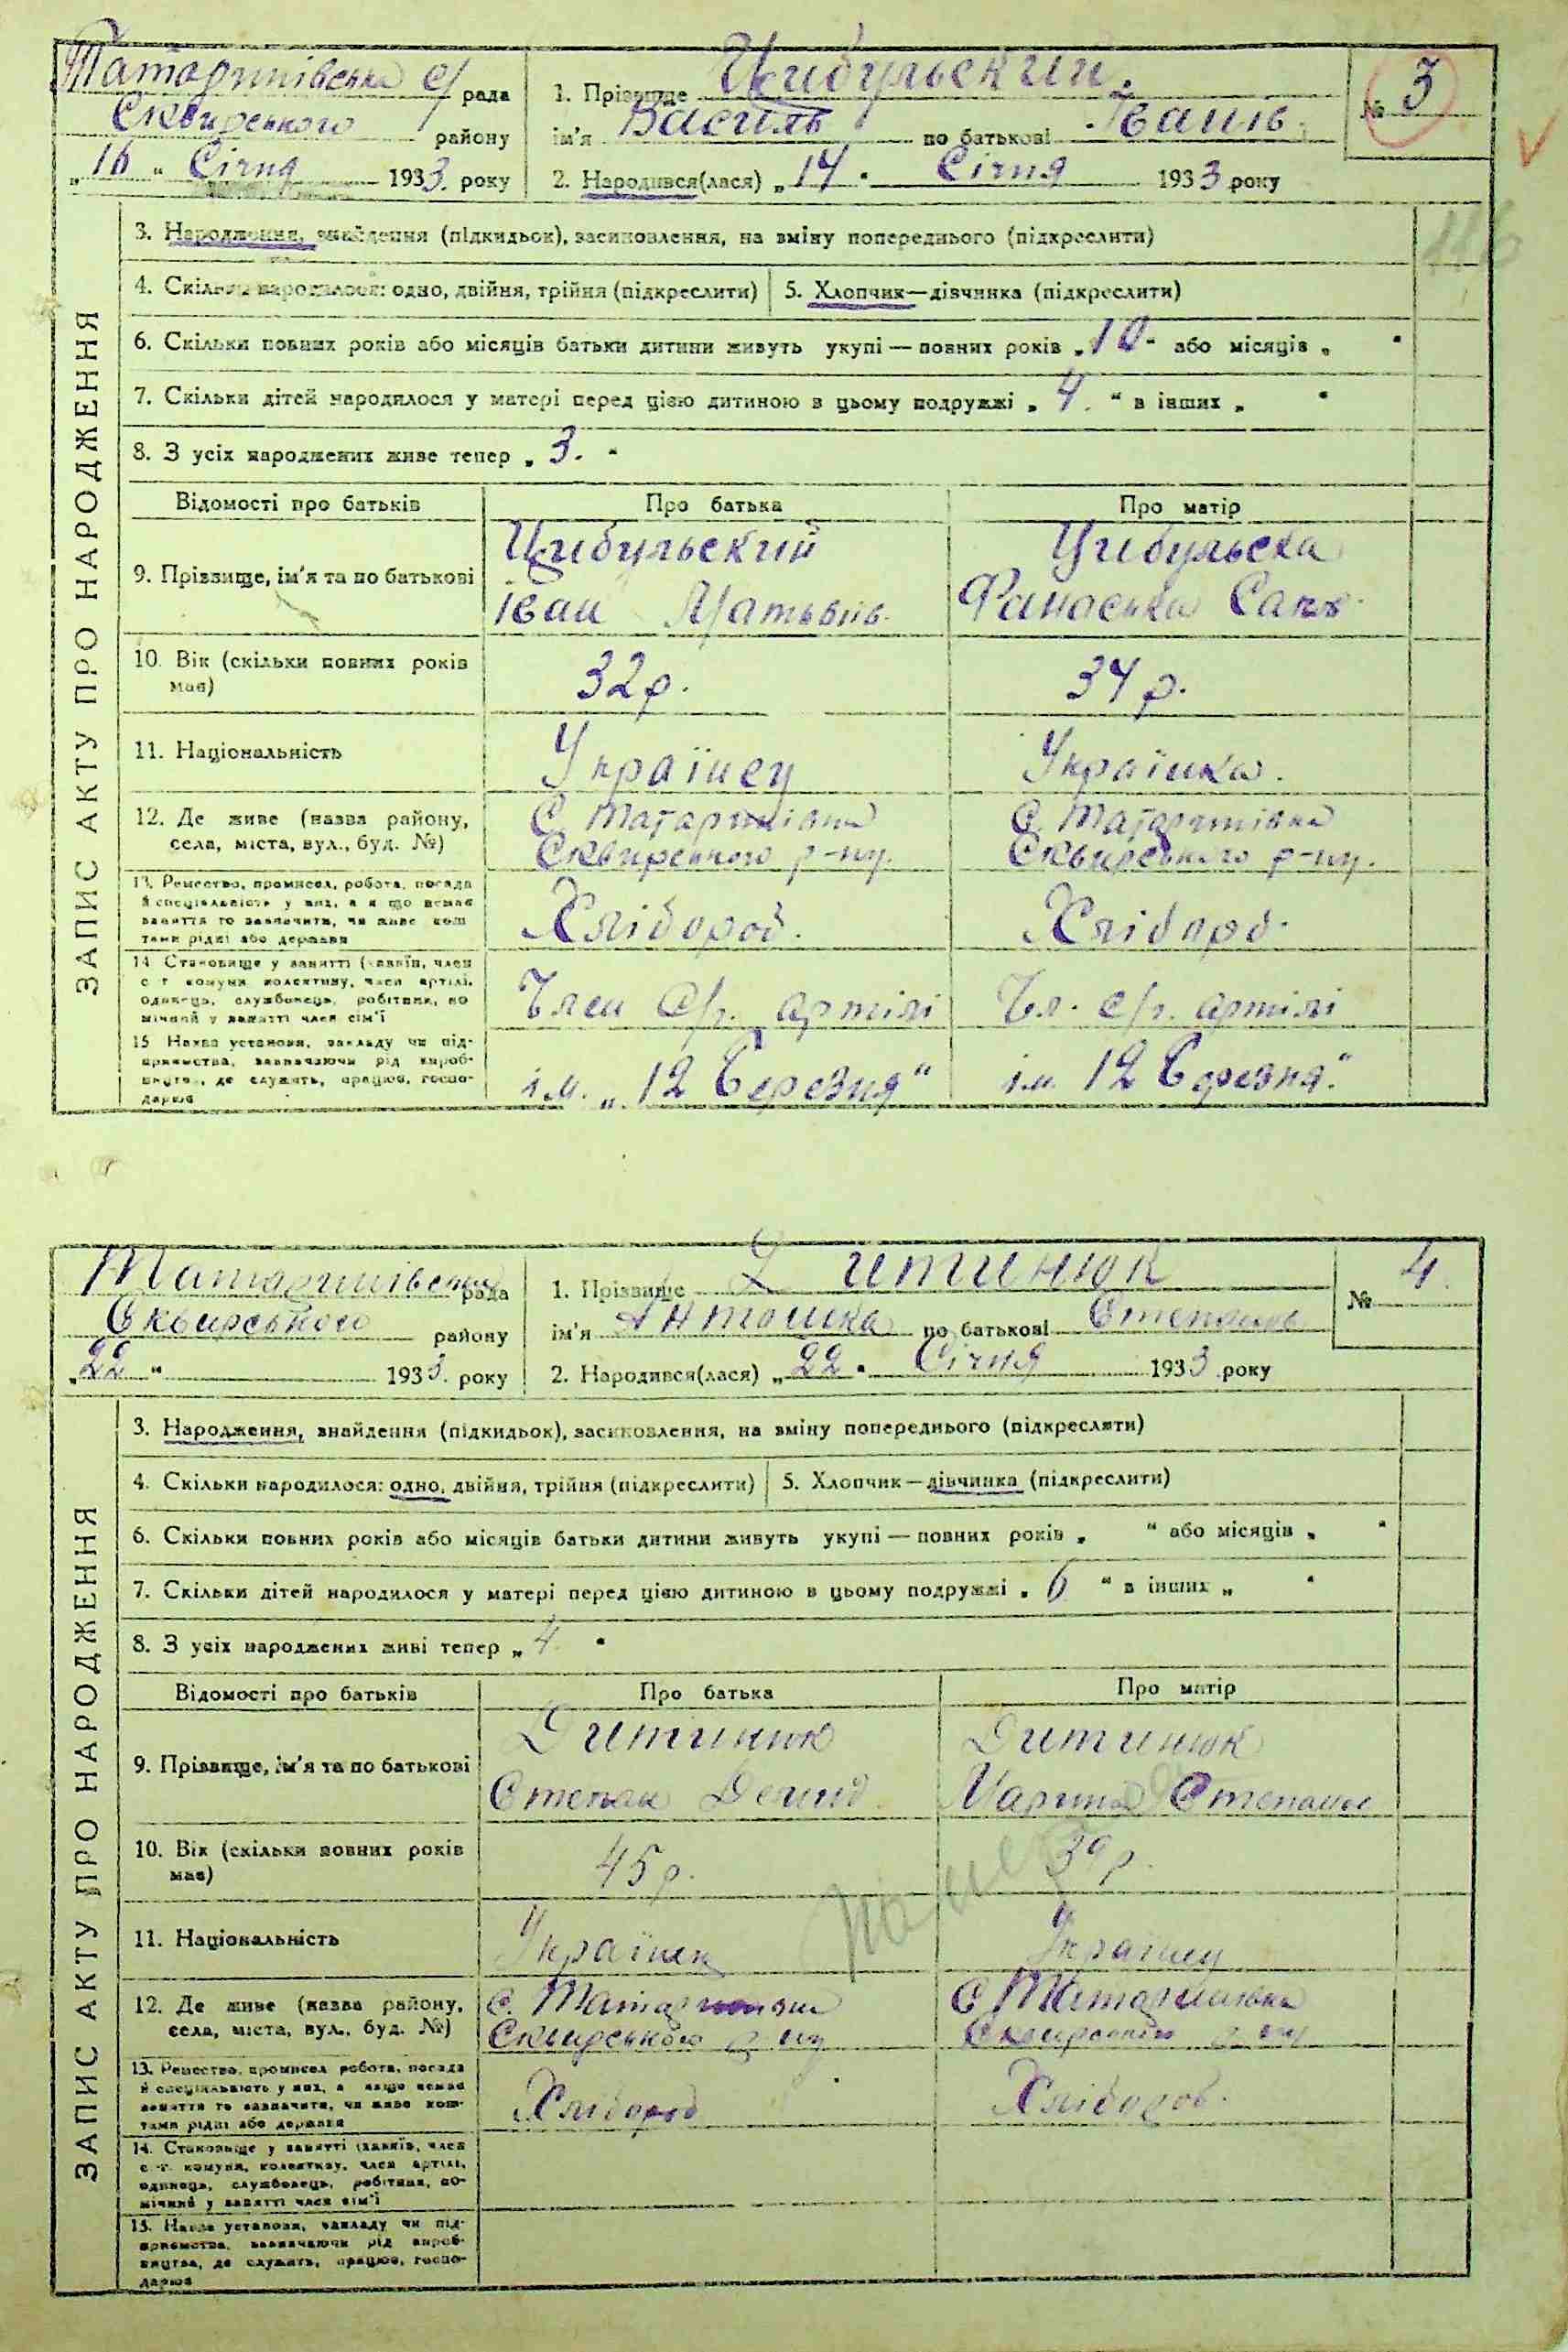 Татаринівська с/рада
Сквирського району
„16“ Січня 1933 року
1. Прізвище Цибульский
ім'я Василь по батькові Іванів
2. Народився(лася) „14“ Січня 1933 року
№ 3
ЗАПИС АКТУ ПРО НАРОДЖЕННЯ
3. Народження, знайдення (підкидьок), засиновлення, на зміну попереднього (підкреслити)
4. Скільки народилося: одно, двійня, трійня (підкреслити) 5. Хлопчик—дівчинка (підкреслити)
6. Скільки повних років або місяців батьки дитини живуть укупі — повних років „10“ або місяців „ “
7. Скільки дітей народилося у матері перед цією дитиною в цьому подружжі „4.“ в інших „ “
8. З усіх народжених живе тепер „3.“
Відомості про батьків Про батька Про матір
9. Прізвище, ім'я та по батькові
Цибульский
Іван Матьвіів.
Цибульска
Фанаська
10. Вік (скільки повних років має)
32 р. 34 р.
11. Національність
Українец Українка.
12. Де живе (назва району, села, міста, вул., буд. №)
С. Татаринівка
Сквирського р-ну.
С. Татаринівка
Сквирського р-ну.
13. Ремество, промисел, робота, посада
й спеціальність у них, а якщо немає
заняття то зазначити, чи живе кош
тами рідні або держави
Хлібороб. Хлібороб.
14. Становище у занятті (хазяїн, член
с. г. комуни, колективу, член артілі,
одинець, службовець, робітник, по
мічний у занятті член сім'ї
Член С/г. артілі Чл. с/г. артілі
15. Назва установи, закладу чи під-
приємства, зазначаючи рід вироб-
ництва, де служить, працює, госпо-
дарює
ім. „12 Березня“ ім. 12 Березня.“
Татаринівська рада
Сквирського району
„22“ 1933 року
1. Прізвище Дитинюк
ім'я Антошка по батькові Степанов
2. Народився(лася) „22“ Січня 1933 року
№ 4
ЗАПИС АКТУ ПРО НАРОДЖЕННЯ
3. Народження, знайдення (підкидьок), засиновлення, на зміну попереднього (підкреслити)
4. Скільки народилося: одно, двійня, трійня (підкреслити) 5. Хлопчик—дівчинка (підкреслити)
6. Скільки повних років або місяців батьки дитини живуть укупі — повних років „ “ або місяців „ “
7. Скільки дітей народилося у матері перед цією дитиною в цьому подружжі „6“ в інших „ “
8. З усіх народжених живі тепер „4“
Відомості про батьків Про батька Про матір
9. Прізвище, ім'я та по батькові
Дитинюк
Степан
Дитинюк
Марина Степанов
10. Вік (скільки повних років має)
45 р. 39 р.
11. Національність
Українец Украінец
12. Де живе (назва району, села, міста, вул., буд. №)
с. Татаринівка
Сквирського р-ну
С. Татаринівка
Сквирського р-ну
13. Ремество, промисел робота, посада
й спеціальність у них, а якщо немає
заняття то зазначити, чи живе кош-
тами рідні або держави
Хлібороб Хлібороб.
14. Становище у занятті (хазяїн, член
с. г. комуни, колективу, член артілі,
одинець, службовець, робітник, по-
мічний у занятті член сім'ї
15. Назва установи, закладу чи під-
приємства, зазначаючи рід вироб-
ництва, де служить, працює, госпо-
дарює